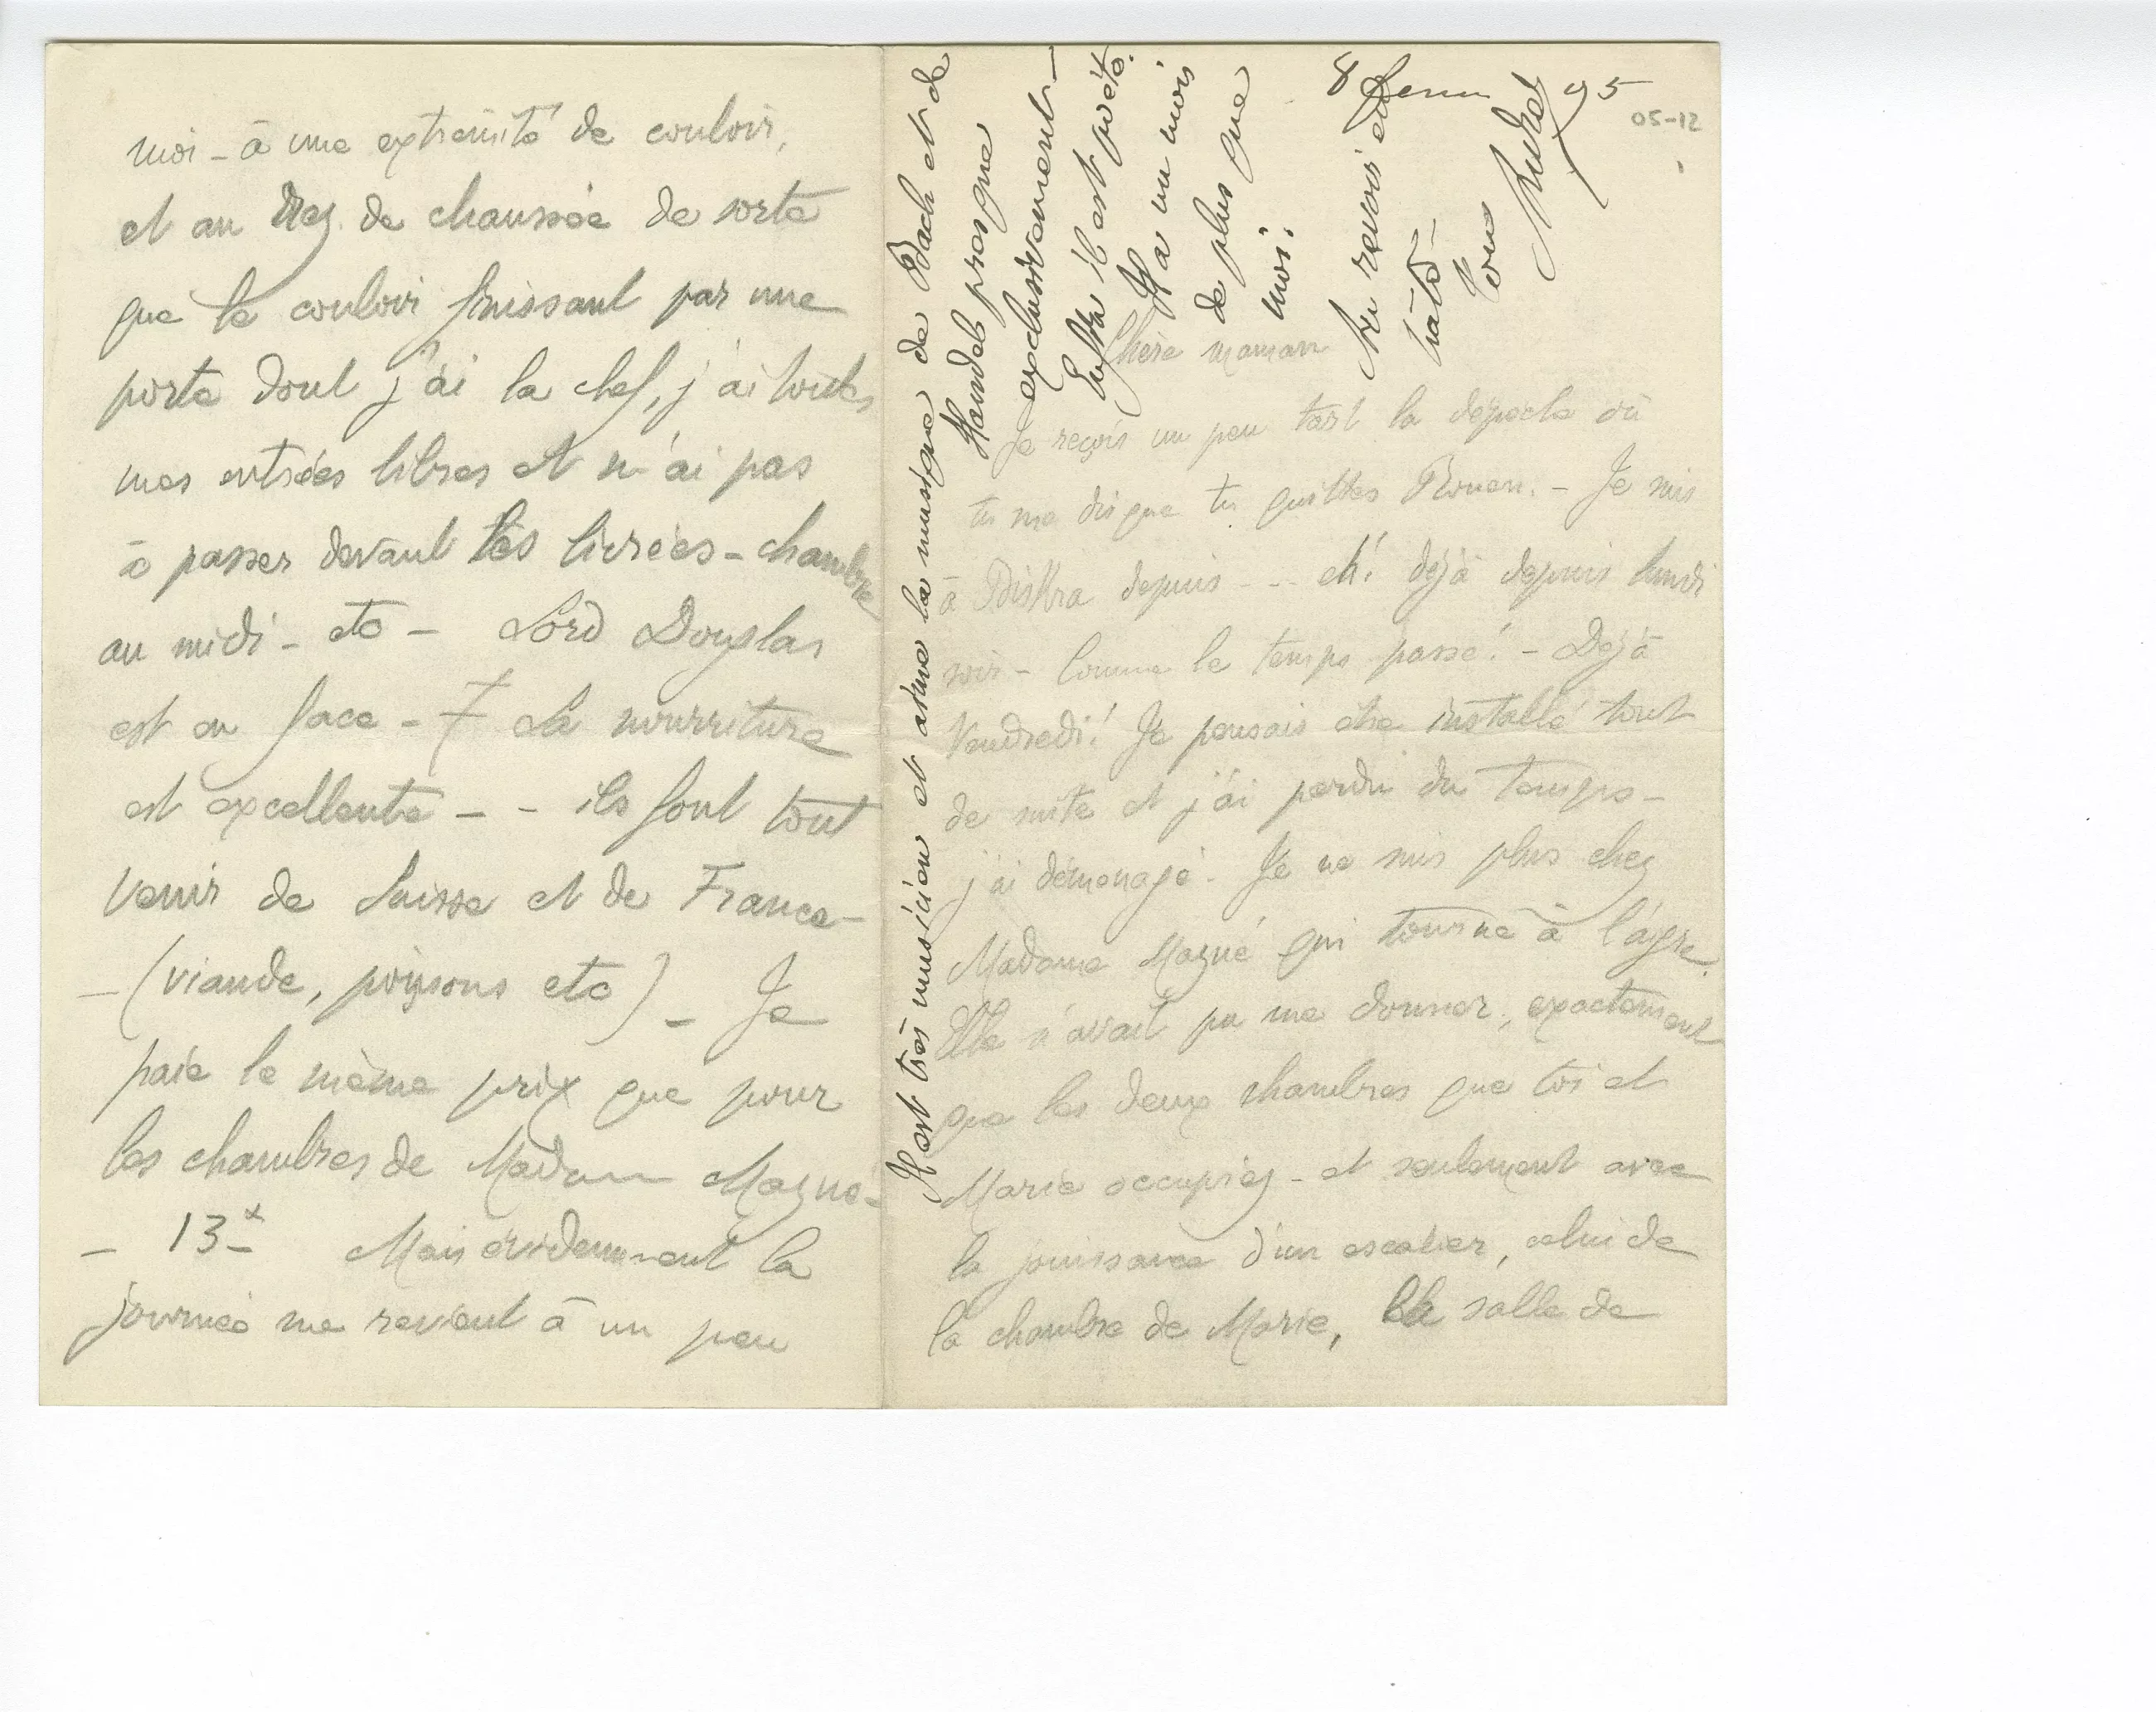 8 95
05-12
Chère maman
Je reçois un peu tard la dépêche où
tu me dis que tu quittes Rouen. – Je suis
à Biskra depuis --- eh! déjà depuis lundi
soir – Comme le temps passe! – Déjà
Vendredi! Je pensais être installé tout
de suite et j'ai perdu du temps –
j'ai déménagé. Je ne suis plus chez
Madame Magné qui tourne à l'aigre.
Elle n'avait pu me donner, exactement
que les deux chambres que toi et
Marie occupiez – et seulement avec
la jouissance d'un escalier, celui de
la chambre de Marie, la salle de
moi – à une extrémité de couloir,
et au rez de chaussée de sorte
que le couloir finissant par une
porte dont j'ai la clef, j'ai toutes
mes entrées libres et n'ai pas
à passer devant les livrées – chambre
au midi – etc – Lord Douglas
est en face – La nourriture
est excellente – – ils font tout
venir de Suisse et de France –
– (viande, poissons etc) – Je
paie le même prix que pour
les chambres de Madame Magné –
– 13 Mais évidemment la
journée me revient à un peu
Il est très musicien et aime la musique de Bach et de
Haendel presque
exclusivement –
Enfin il est poète.
Il a un mois
de plus que
moi.
Au revoir et à
bientôt –
Ton
André